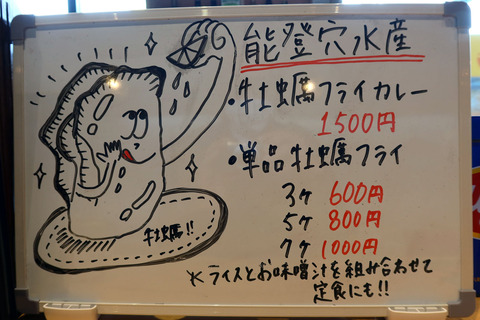 能登穴水産
・牡蠣フライカレー
1500円
・単品牡蠣フライ
3ヶ 600円
5ヶ 800円
7ヶ 1000円
※ライスとお味噌汁を組み合わせて
定食にも!!
牡蠣!!